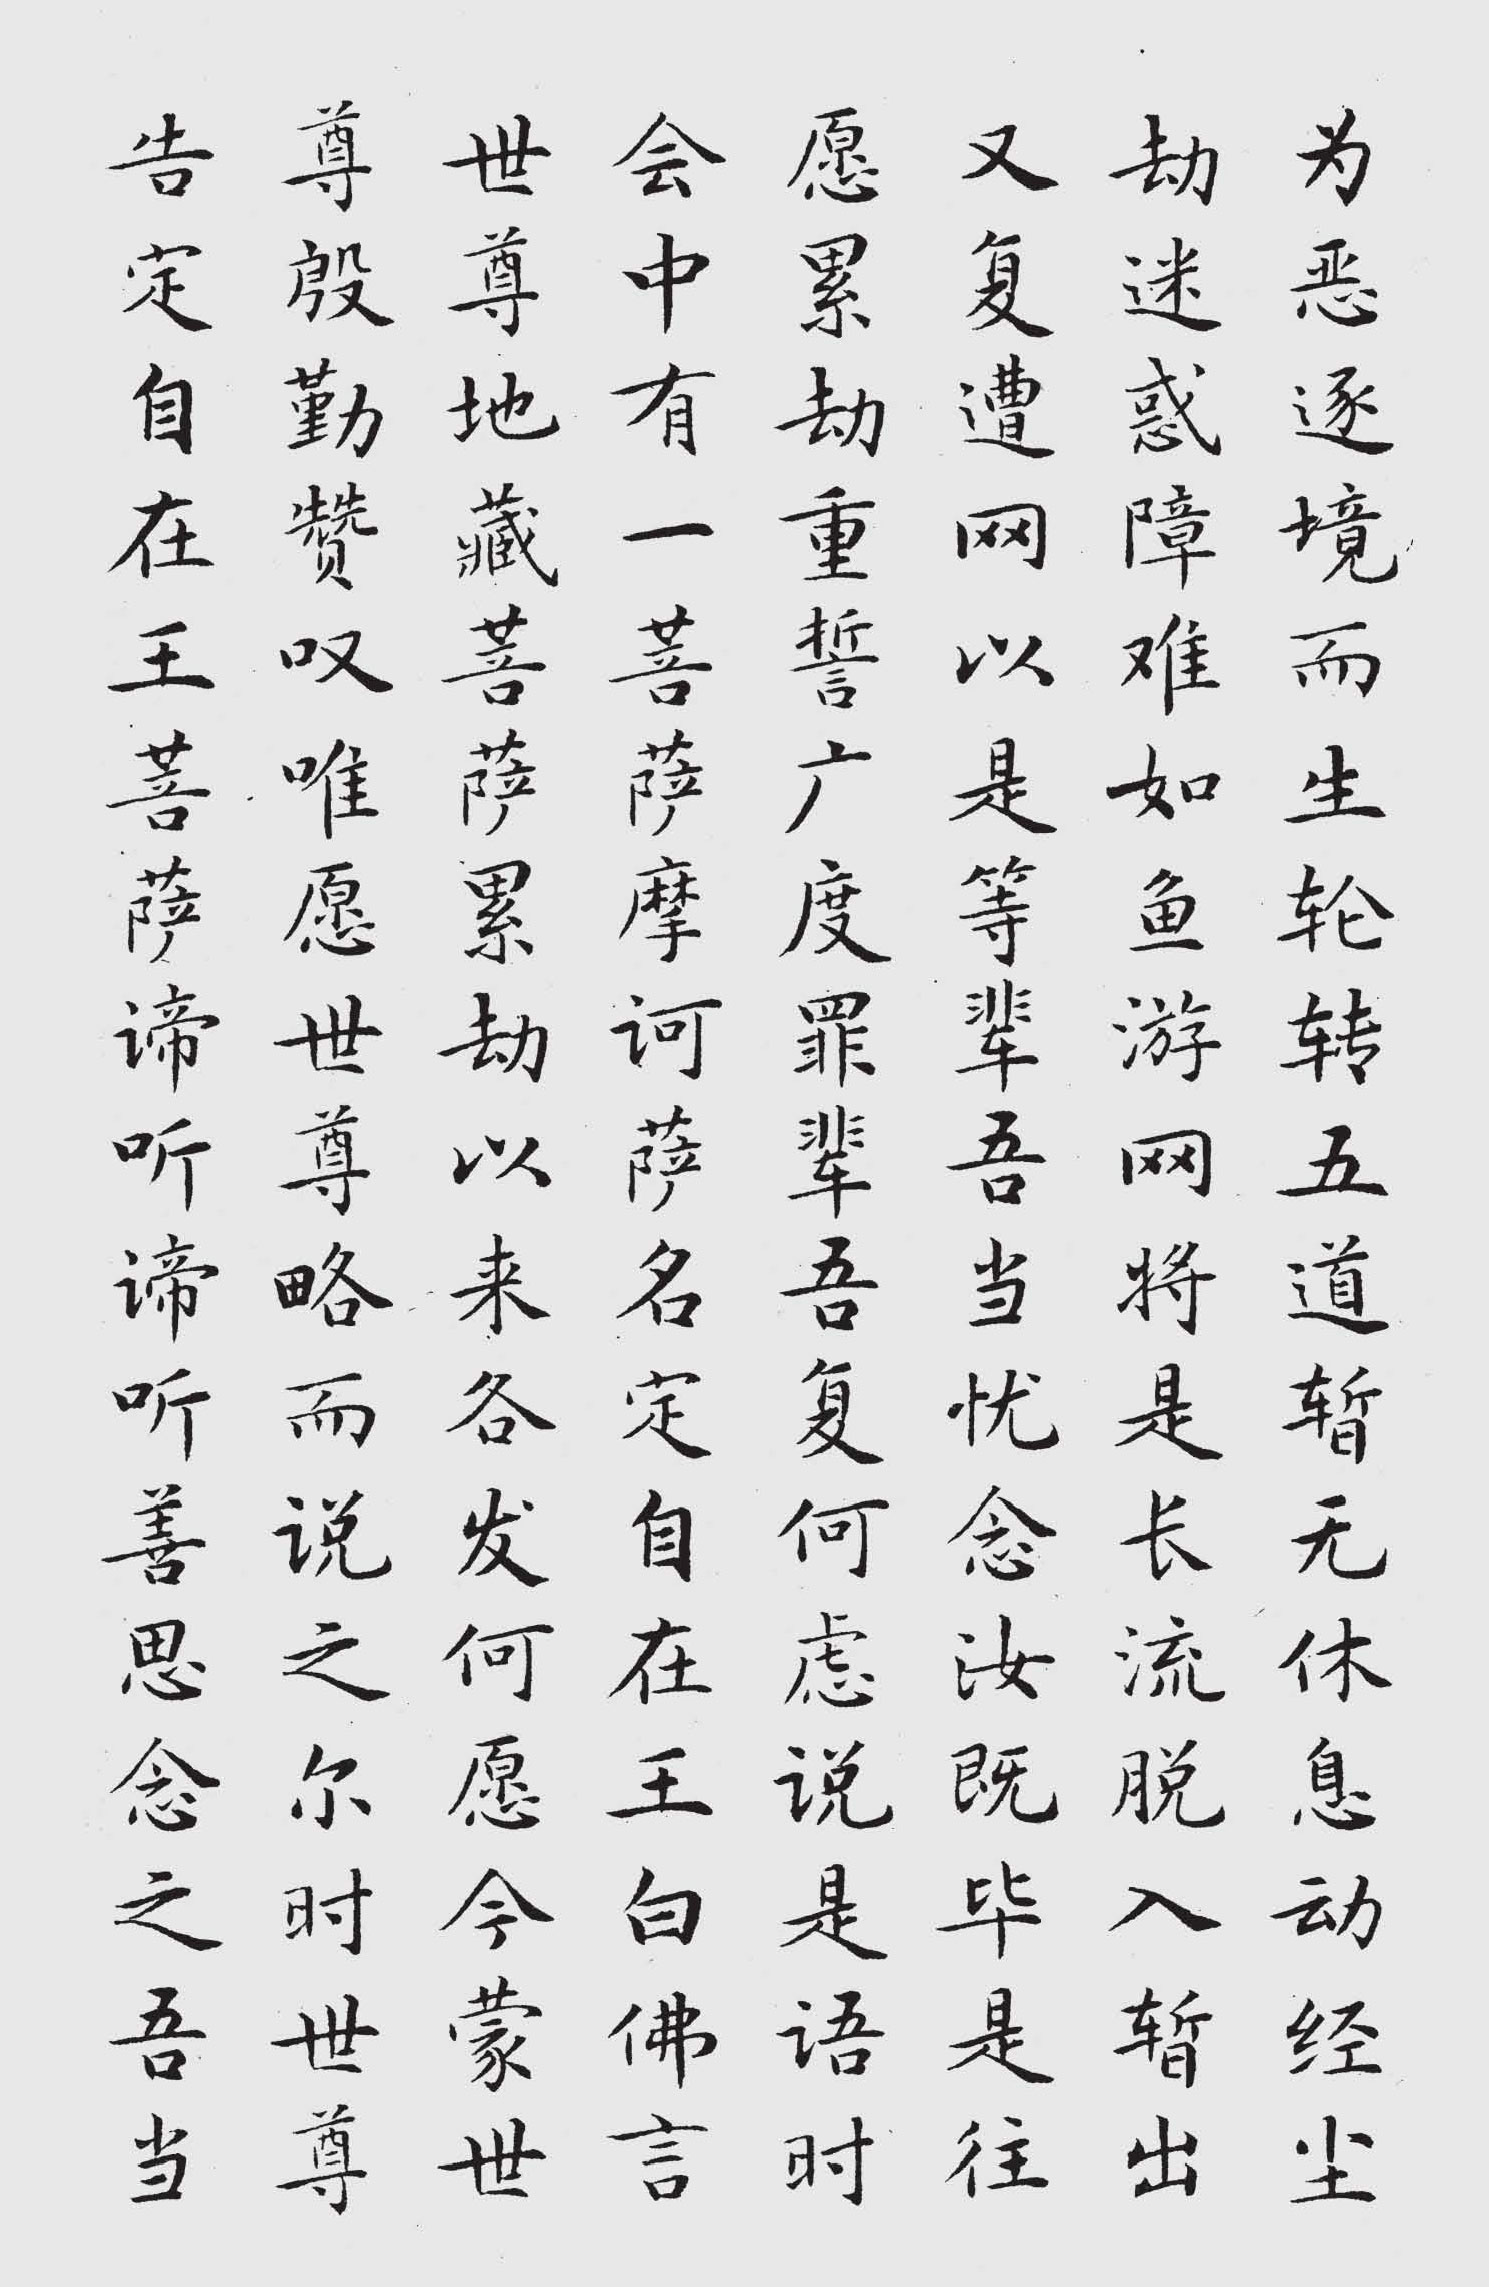 为恶逐境而生轮转五道暂无休息动经尘
劫迷惑障难如鱼游网将是长流脱入暂出
又复遭网以是等辈吾当忧念汝既毕是往
愿累劫重誓广度罪辈吾复何虑说是语时
会中有一菩萨摩诃萨名定自在王白佛言
世尊地藏菩萨累劫以来各发何愿今蒙世
尊殷勤赞叹唯愿世尊略而说之尔时世尊
告定自在王菩萨谛听谛听善思念之吾当